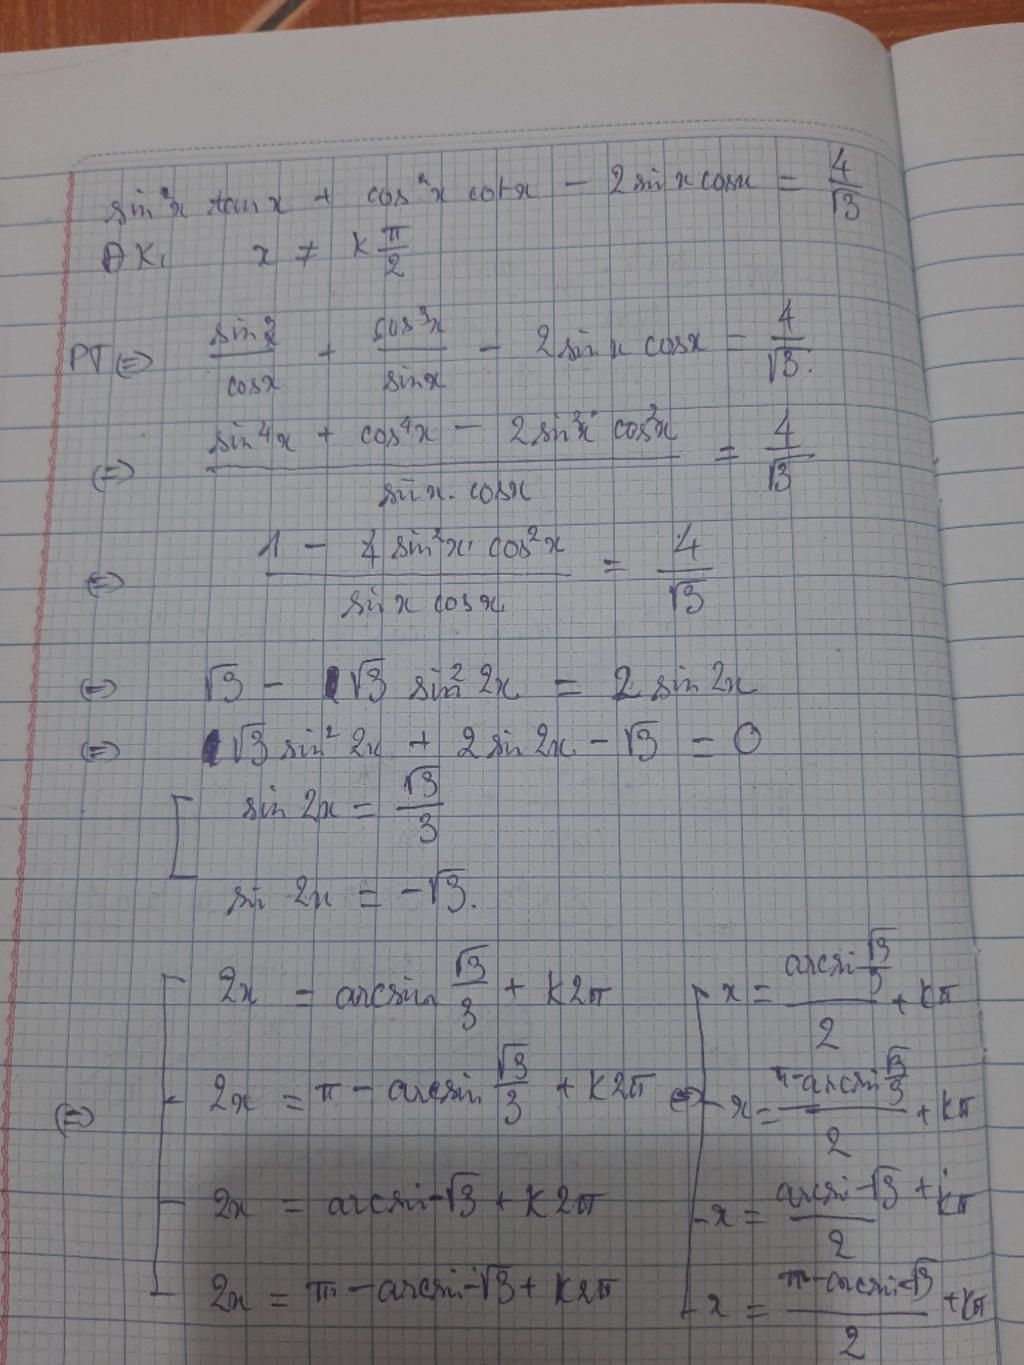 sin²x tanx + cos²x cotx - 2sinxcosx = 4/√3
ĐK: x ≠ kπ/2
PT ⇔ sin³/cosx + cos³x/sinx - 2sinx cosx = 4/√3.
⇔ (sin⁴x + cos⁴x - 2sin²x cos²x)/(sinx.cosx) = 4/√3
⇔ (1 - 4sin²x.cos²x)/(sinx cosx) = 4/√3
⇔ √3 - √3 sin²2x = 2sin2x
⇔ √3sin²2x + 2sin2x - √3 = 0
[ sin2x = √3/3
sin2x = -√3.
[ 2x = arcsin √3/3 + k2π [ x = (arcsin √3/3)/2 + kπ
⇔ 2x = π - arcsin √3/3 + k2π ⇔ x = (π-arcsin √3/3)/2 + kπ
2x = arcsin-√3 + k2π x = (arcsin-√3)/2 + kπ
2x = π - arcsin-√3 + k2π x = (π-arcsin-√3)/2 + kπ